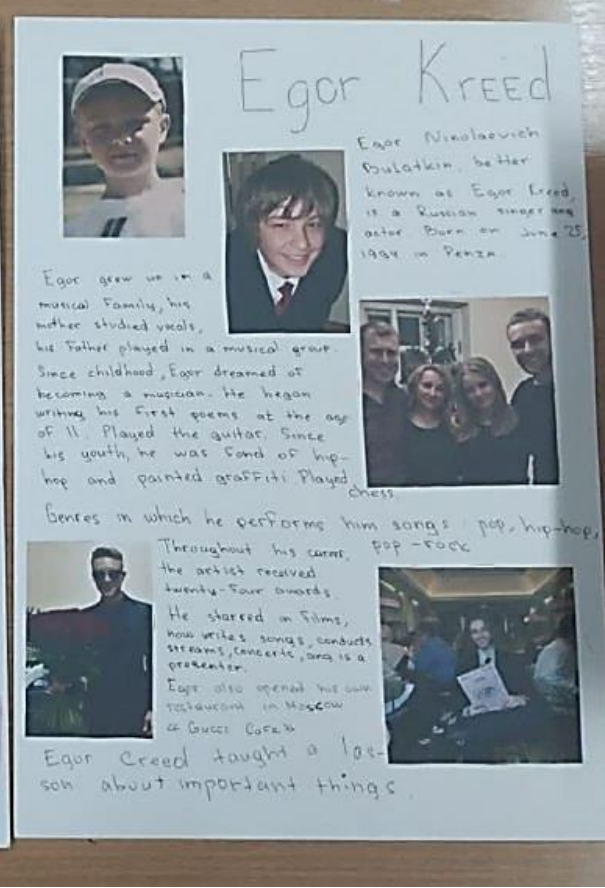 Egor Kreed
Egor Nikolaevich
Bulatkin, better
known as Egor Kreed,
is a Russian singer ang
actor. Born on June 25,
1994 in Penza.
Egor grew up in a
musical Family, his
mother studied vocals,
his Father played in a musical group.
Since childhood, Egor dreamed of
becoming a musician. He began
writing his first poems at the age
of 11. Played the guitar. Since
his youth, he was fond of hip-
hop and painted graffiti. Played
chess
Genres in which he performs him songs: pop, hip-hop,
pop-rock
Throughout his career,
the artist received
twenty-four awards.
He starred in films,
now writes songs, conducts
streams, concerts, ang is a
presenter.
Egor also opened his own
restaurant in Moscow
« Gucci Cafe »
Egor Creed taught a les-
son about important things.